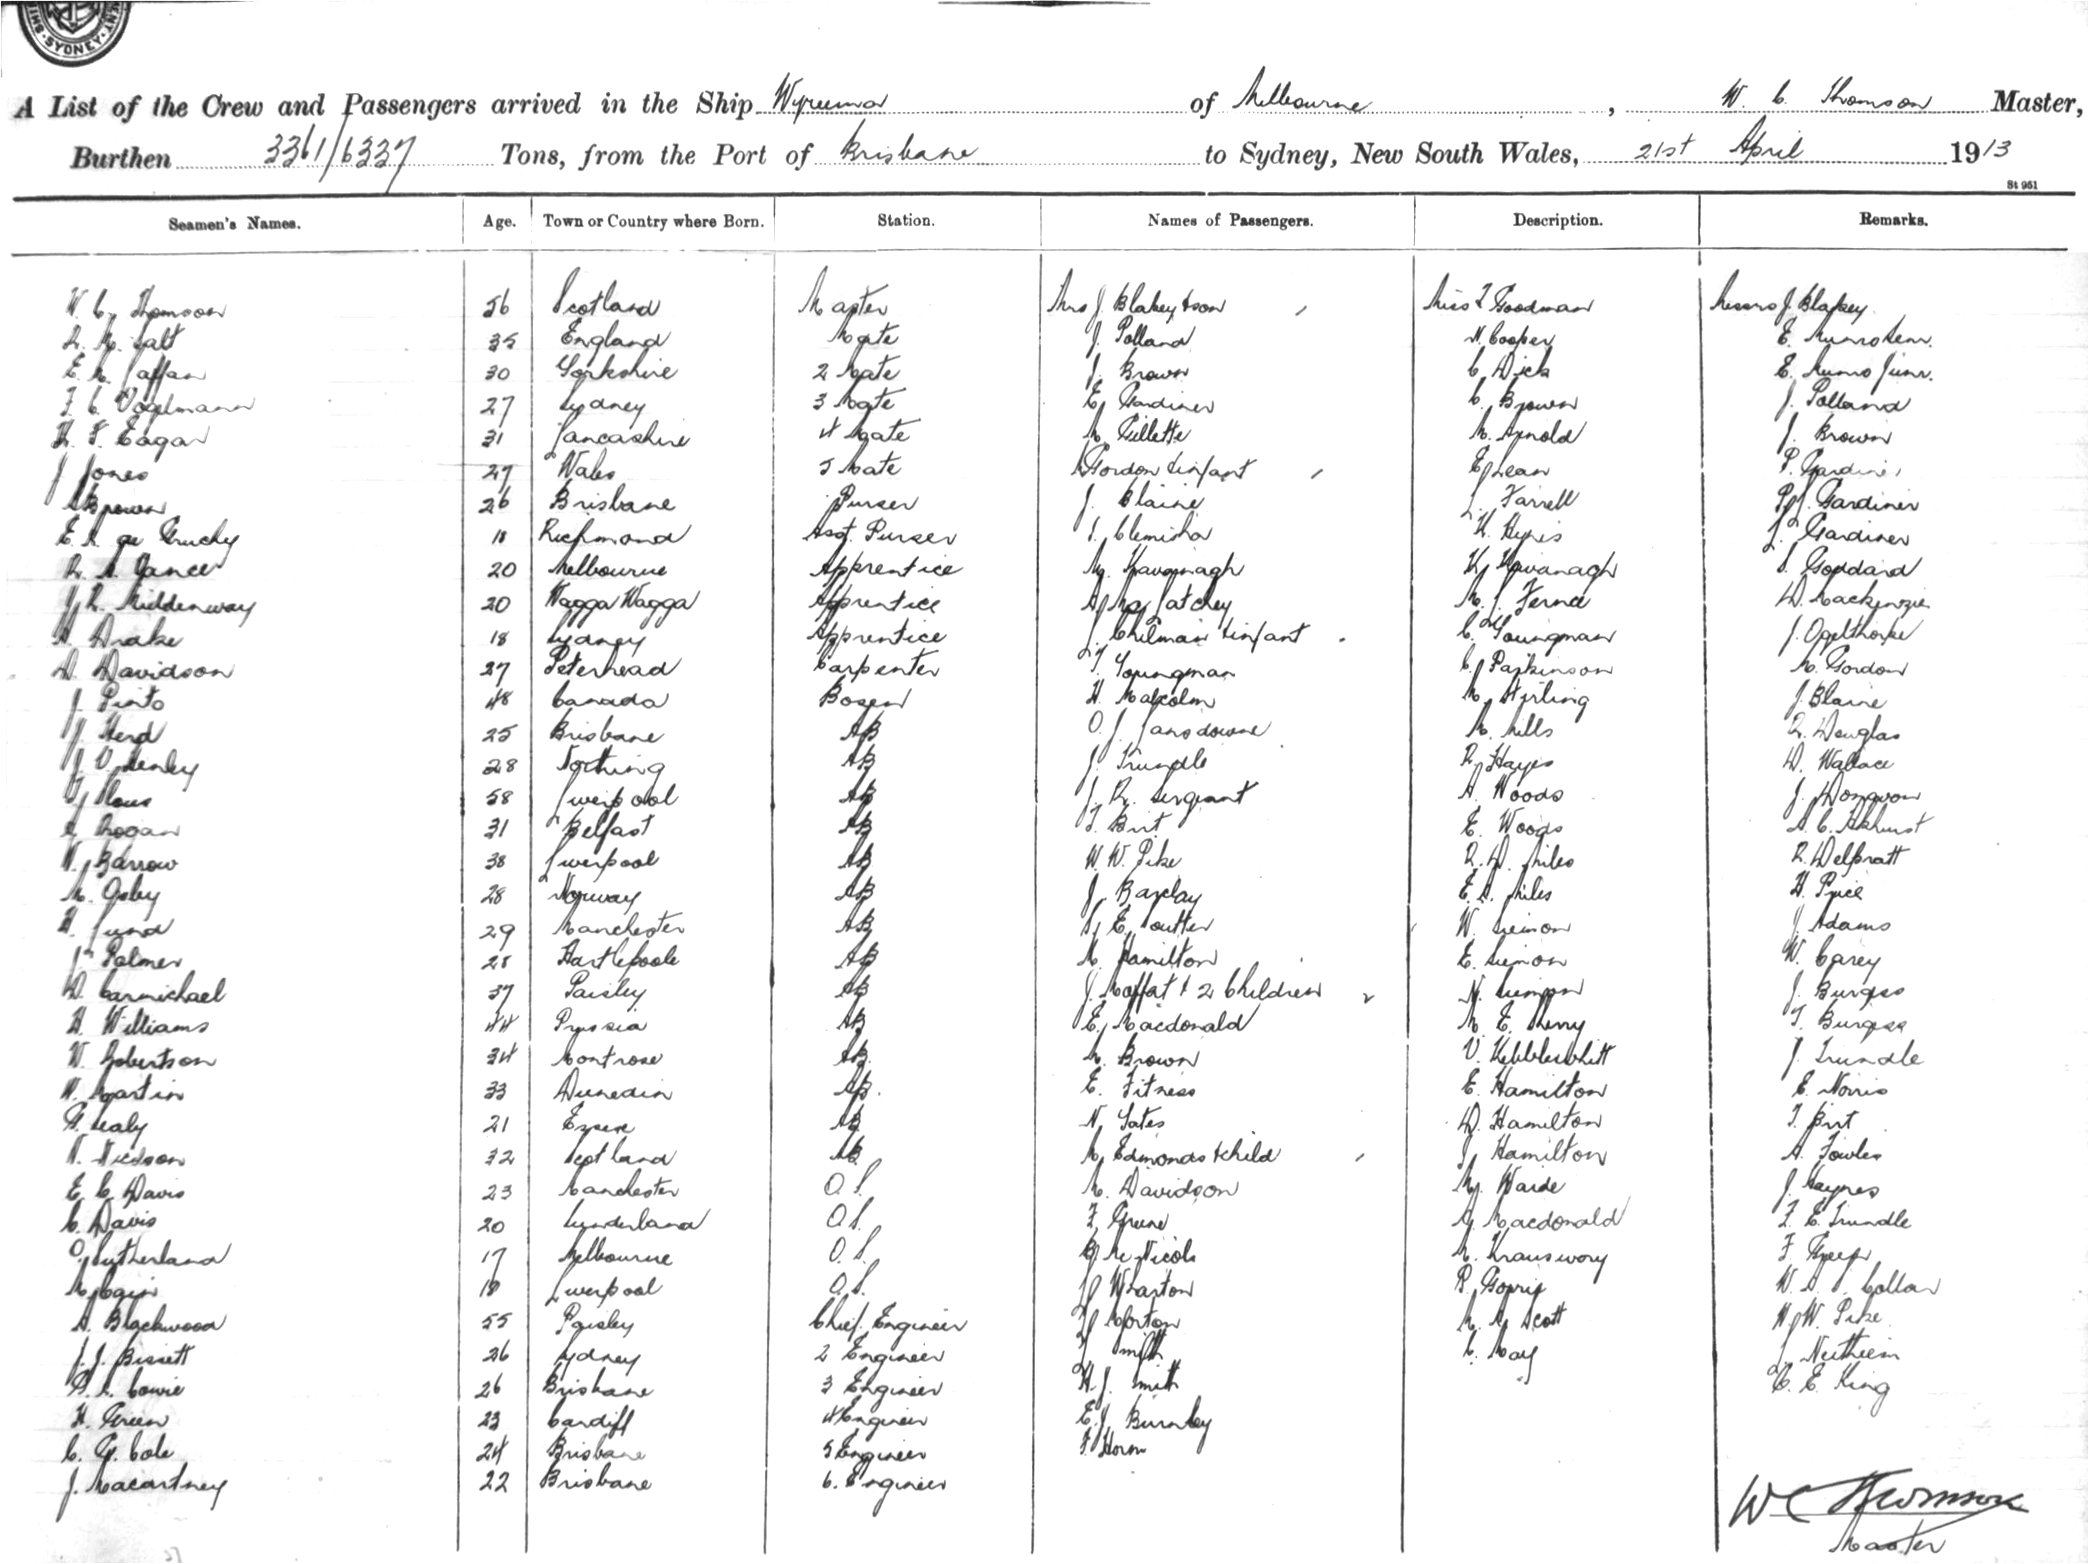 SYDNEY
A List of the Crew and Passengers arrived in the Ship Wyreema of Melbourne, W. C. Thomson Master,
Burthen 3361/6337 Tons, from the Port of Brisbane to Sydney, New South Wales, 21st April 1913
St 951
Seamen's Names. Age. Town or Country where Born. Station. Names of Passengers. Description. Remarks.
W. C. Thomson 56 Scotland Master Mrs J. Blakey & son Miss Goodman Messrs J. Blakey
35 England Mate J. Polland N. Cooper E. Munro Senr.
30 Yorkshire 2 Mate J. Brown C. Dick E. Munro Junr.
F. C. Vogelmann 27 Sydney 3 Mate E. Gardiner C. Brown J. Polland
H. F. Eagar 31 Lancashire 4 Mate M. Gillette M. Arnold J. Brown
J. Jones 27 Wales 5 Mate Gordon & infant E. Lean P. Gardiner
A. Brown 26 Brisbane Purser J. Blaine L. Farrell P. J. Gardiner
E. L. de Gruchy 18 Richmond Asst. Purser K. Hynes J. Gardiner
R. A. Vance 20 Melbourne Apprentice M. Kavanagh K. Kavanagh S. Goddard
J. R. Middenway 20 Wagga Wagga Apprentice D. Mackenzie
A. Drake 18 Sydney Apprentice J. Chilman & infant C. Youngman J. Ogelthorpe
D. Davidson 27 Peterhead Carpenter T. Youngman C. Parkinson M. Gordon
J. Pinto 48 Canada Bosen H. Malcolm M. Stirling J. Blaine
J. Herd 25 Brisbane AB O. J. Lansdowne M. Mills R. Douglas
Henley 28 AB J. Trundle R. Hayes D. Wallace
58 Liverpool AB J. R. Sergeant A. Woods J. Donovan
Grogan 31 Belfast AB T. Birt E. Woods A. C.
W. Barrow 38 Liverpool AB W. W. Pike R. D. Miles R. Delpratt
M. 28 Norway AB J. Barclay E. A. Miles H. Price
H. Lund 29 Manchester AB E. Soutter W. Simon J. Adams
J. Palmer 28 Hartlepoole AB M. Hamilton E. Simon W. Carey
D. Carmichael 37 Paisley AB J. Moffat & 2 Children N. Simpson J. Burgess
H. Williams 44 Prussia AB E. Macdonald M. E. Sherry T. Burgess
W. Robertson 34 Montrose AB. M. Brown V. Kebblewhitt J. Trundle
W. Martin 33 Dunedin AB. E. Fitness E. Hamilton E. Norris
Healy 21 Essex AB N. Yates D. Hamilton T. Birt
32 Scotland AB. M. Edmonds & child J. Hamilton A. Fowles
E. C. Davis 23 Manchester O.S. M. Davidson M. Warde J. Haynes
C. Davis 20 Sunderland O.S. F. Greene Macdonald F. E. Trundle
O. Sutherland 17 Melbourne O.S. McNicols M. F.
M. Cain 18 Liverpool O.S. Wharton P. W. A. J. Collar
A. Blackwood 55 Paisley Chief Engineer Morton M. A. Scott W. W. Pike
J. J. Bissett 26 Sydney 2 Engineer Smith C. May
Cowie 26 Brisbane 3 Engineer H. J. Smith C. E. King
H. Green 23 Cardiff 4 Engineer E. J. Burnley
C. G. Cole 24 Brisbane 5 Engineer F. Horn
J. Macartney 22 Brisbane 6. Engineer
W C Thomson
Master